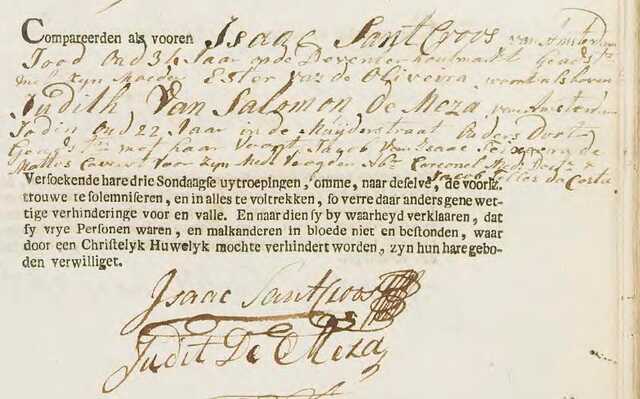 Compareerden als vooren Isaac SantCroos van Amsterdam
Jood Oud 34 Jaar op de Deventer houtmarkt Geads:
met zyn Moeder Ester vaz de Olivera, woont als boven
Judith Van Salomon De Meza, van Amsterdam
Jodin Oud 22 Jaar in de Muyderstraat Ouders Doot
Geads: met haar Voogt Jacob van Isaac
Mattos voor zyn Mede Voogden Coronel &
Jacob da Costa
Versoekende hare drie Sondaagse uytroepingen, omme, naar deselve, de voorsz.
trouwe te solemniseren, en in alles te voltrekken, so verre daar anders gene wet-
tige verhinderinge voor en valle. En naar dien sy by waarheyd verklaaren, dat
sy vrye Personen waren, en malkanderen in bloede niet en bestonden, waar
door een Christelyk Huwelyk mochte verhindert worden, zyn hun hare gebo-
den verwilliget.
Isaac SantCroos
Judit De Meza